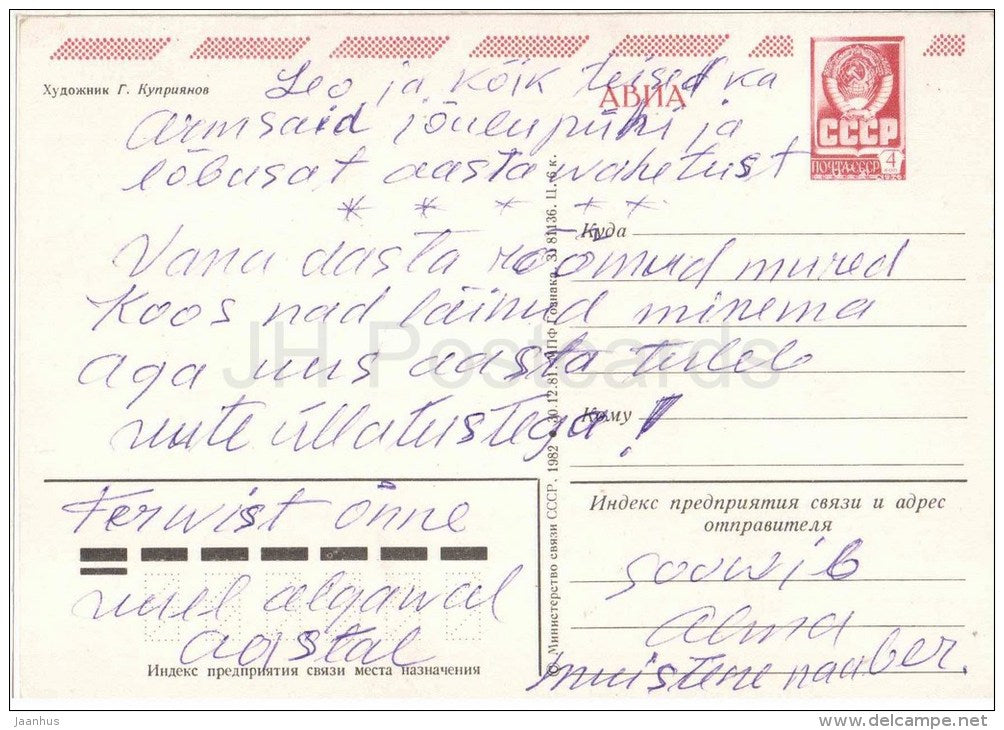 Художник Г. Куприянов
АВИА
СССР
ПОЧТА СССР
4
коп
Leo ja kõik teised ka
armsaid jõulupühi ja
lõbusat aastawahetust
* * * * *
Vana aasta rõõmud mured
Koos nad läinud minema
aga uus aasta tuleb
uute üllatustega!
Terwist õnne
uuel algawal
aastal
Куда
Кому
© Министерство связи СССР, 1982 ● 30.12.81. МПФ Гознака. З. 81136. Ц. 6 к.
Индекс предприятия связи и адрес
отправителя
soowib
alma
muistene naaber.
Индекс предприятия связи места назначения
JH Postcards
Jaanhus
www.delcampe.net